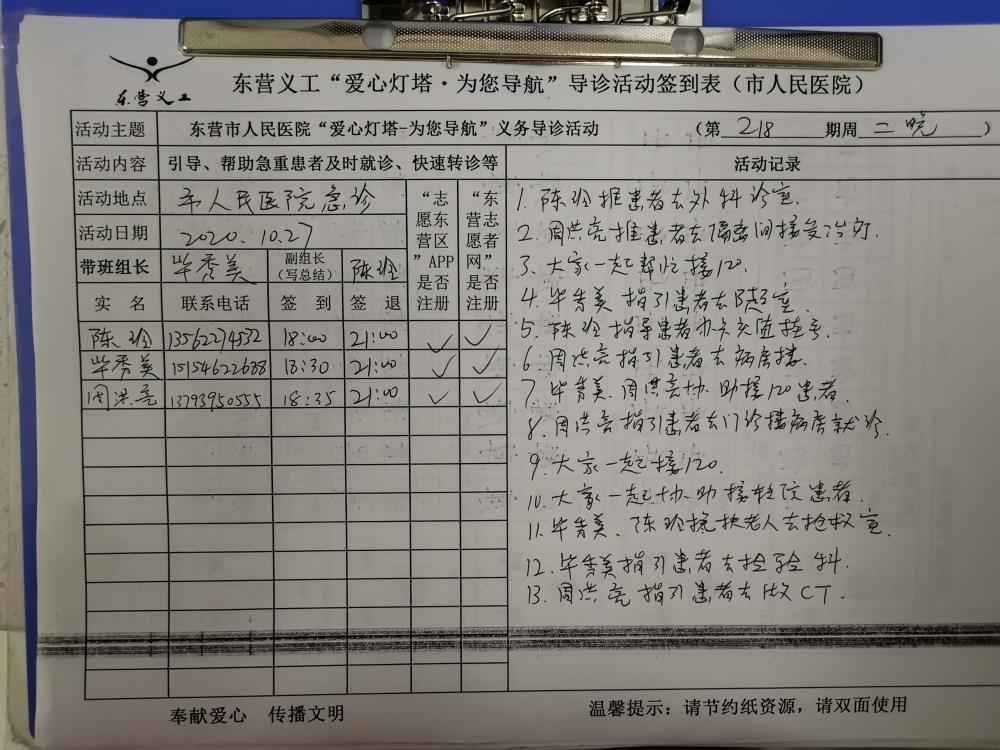 东营义工
东营义工“爱心灯塔·为您导航”导诊活动签到表（市人民医院）
活动主题 东营市人民医院“爱心灯塔-为您导航”义务导诊活动 （第 218 期周 二晚 ）
活动内容 引导、帮助急重患者及时就诊、快速转诊等 活动记录
活动地点 市人民医院急诊 “志愿东营区”APP是否注册 “东营志愿者网”是否注册
活动日期 2020.10.27
带班组长 毕秀美 副组长（写总结） 陈玲
实 名 联系电话 签 到 签 退
陈玲 13562274532 18:00 21:00 ✓ ✓
毕秀美 15154622688 18:30 21:00 ✓ ✓
周洪亮 13793950555 18:35 21:00 ✓ ✓
1. 陈玲推患者去外科诊室.
2. 周洪亮推患者去隔离间接受治疗.
3. 大家一起帮忙接120.
4. 毕秀美指引患者去B超室.
5. 陈玲指导患者办卡充值挂号.
6. 周洪亮指引患者去病房楼.
7. 毕秀美.周洪亮协助接120患者.
8. 周洪亮指引患者去门诊楼病房就诊.
9. 大家一起接120.
10. 大家一起协助接转院患者.
11. 毕秀美、陈玲搀扶老人去抢救室.
12. 毕秀美指引患者去检验科.
13. 周洪亮指引患者去做CT.
奉献爱心 传播文明
温馨提示：请节约纸资源，请双面使用